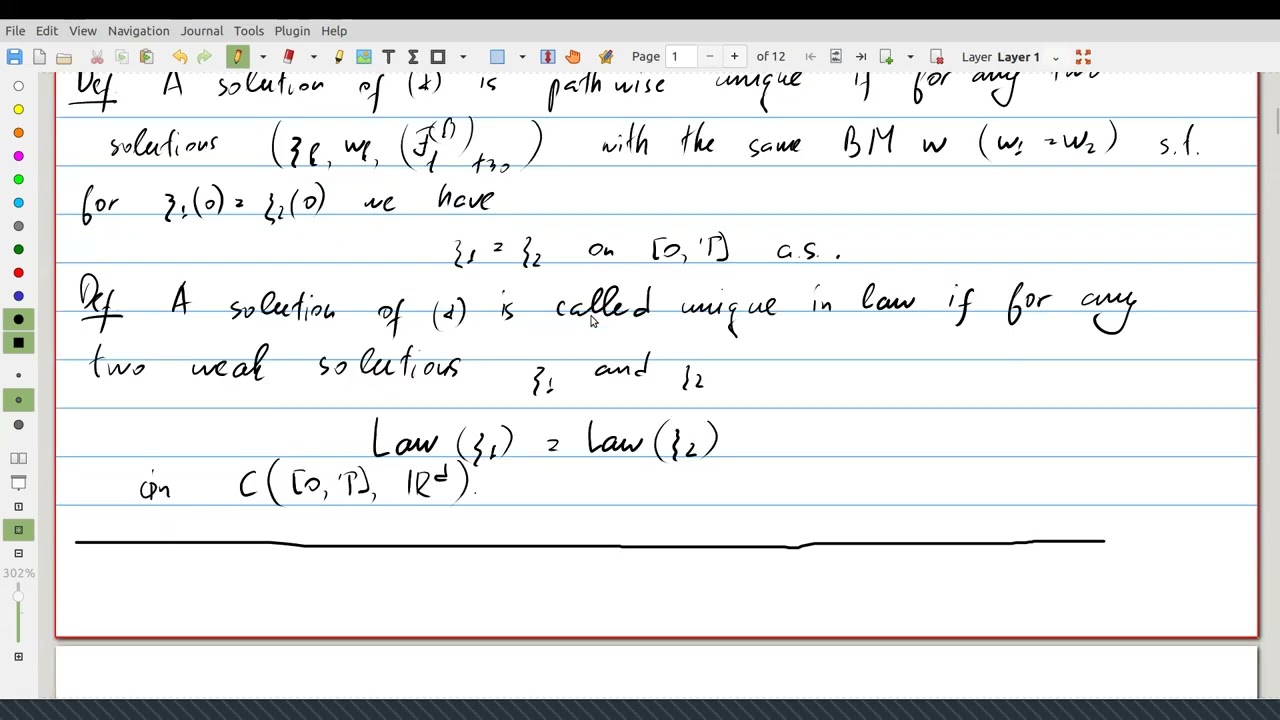 File Edit View Navigation Journal Tools Plugin Help
Page 1 of 12 Layer Layer 1
Def A solution of (1) is pathwise unique if for any two
solutions (ξ_l, w_l, (F_t^(l))_{t≥0}) with the same BM w (w_1 = w_2) s.t.
for ξ_1(0) = ξ_2(0) we have
ξ_1 = ξ_2 on [0, T] a.s.
Def A solution of (1) is called unique in law if for any
two weak solutions ξ_1 and ξ_2
Law (ξ_1) = Law (ξ_2)
in C([0, T], ℝ^d).
302%